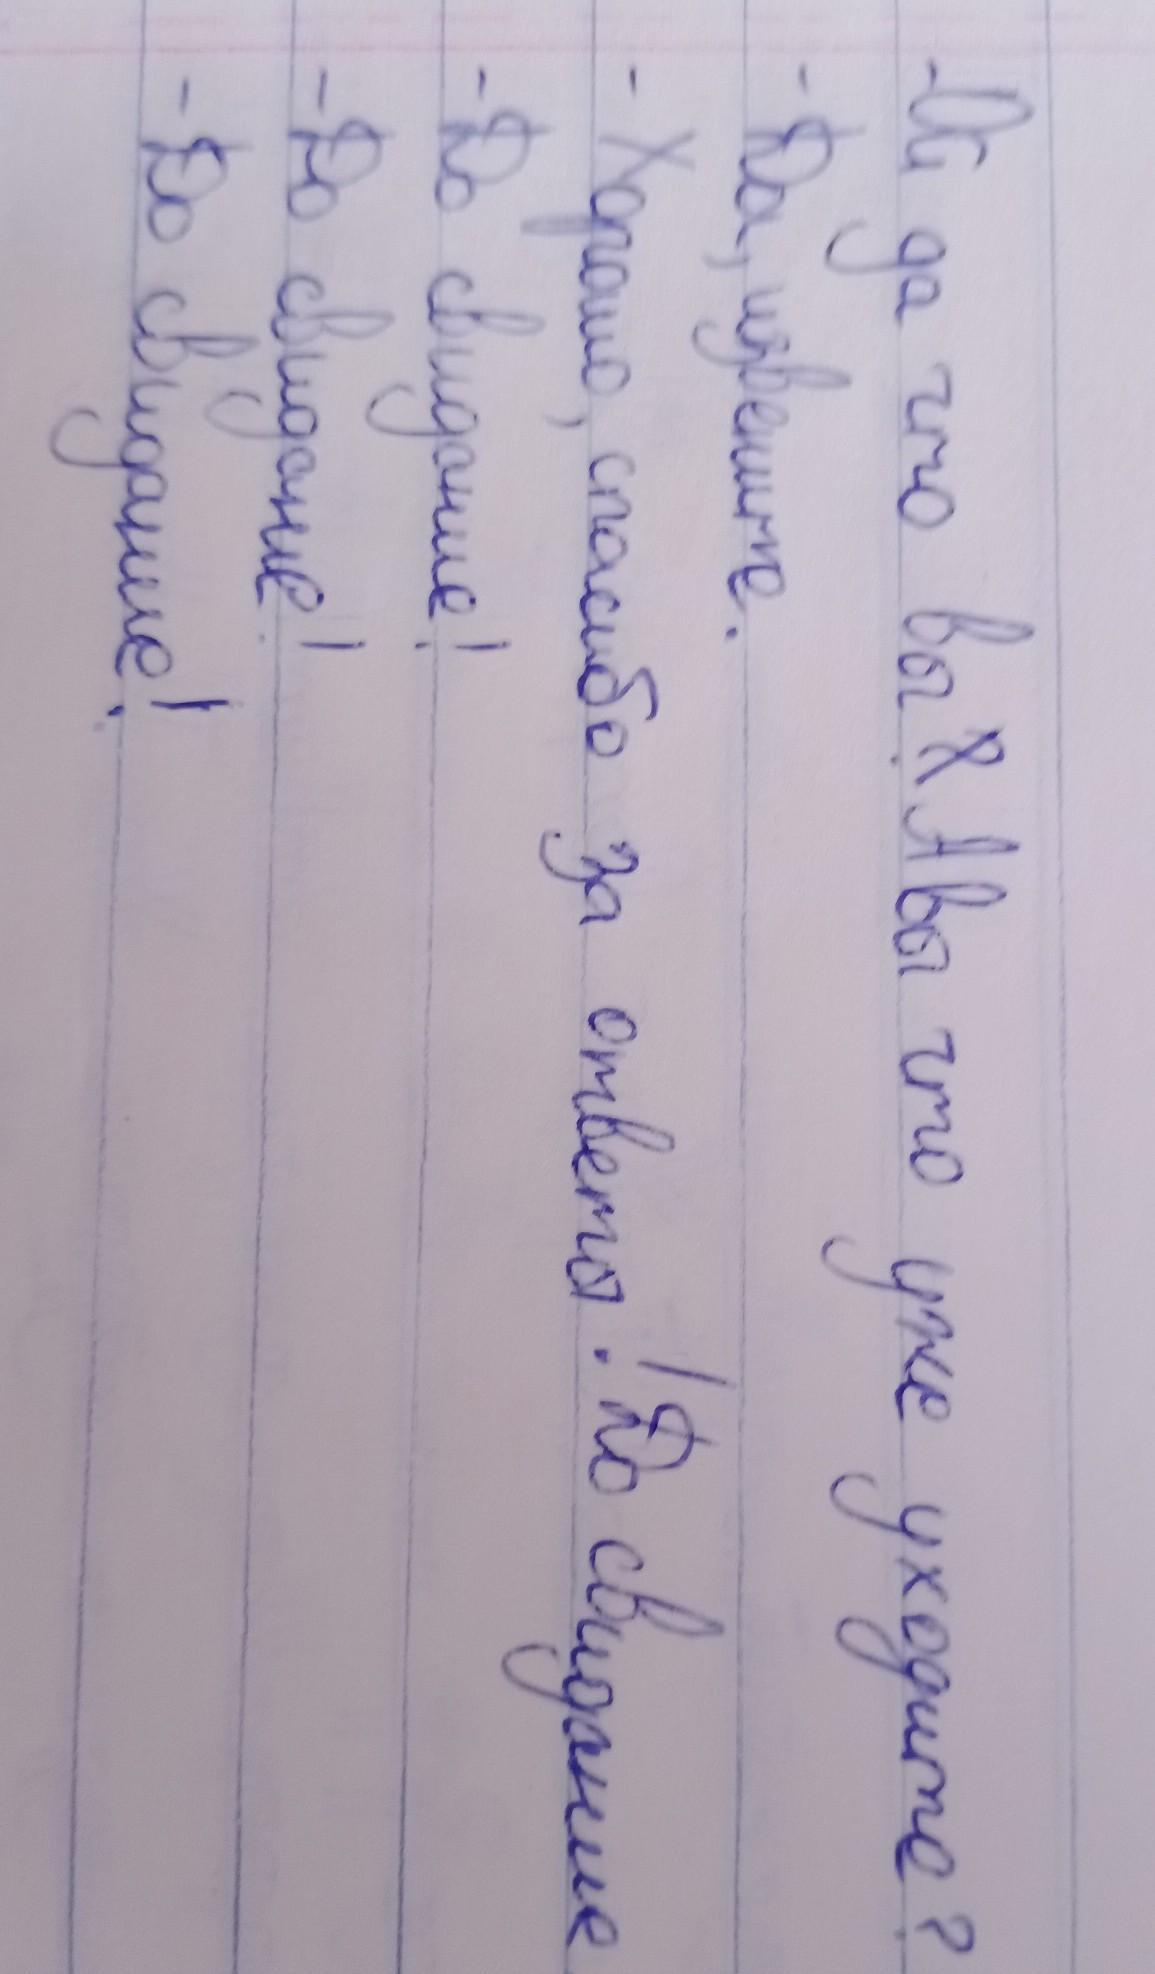 -Ой да что вы? А вы что уже уходите?
- Да, извените.
- Хорошо, спасибо за ответы! До свидание
- До свидание!
- До свидание!
- До свидание!